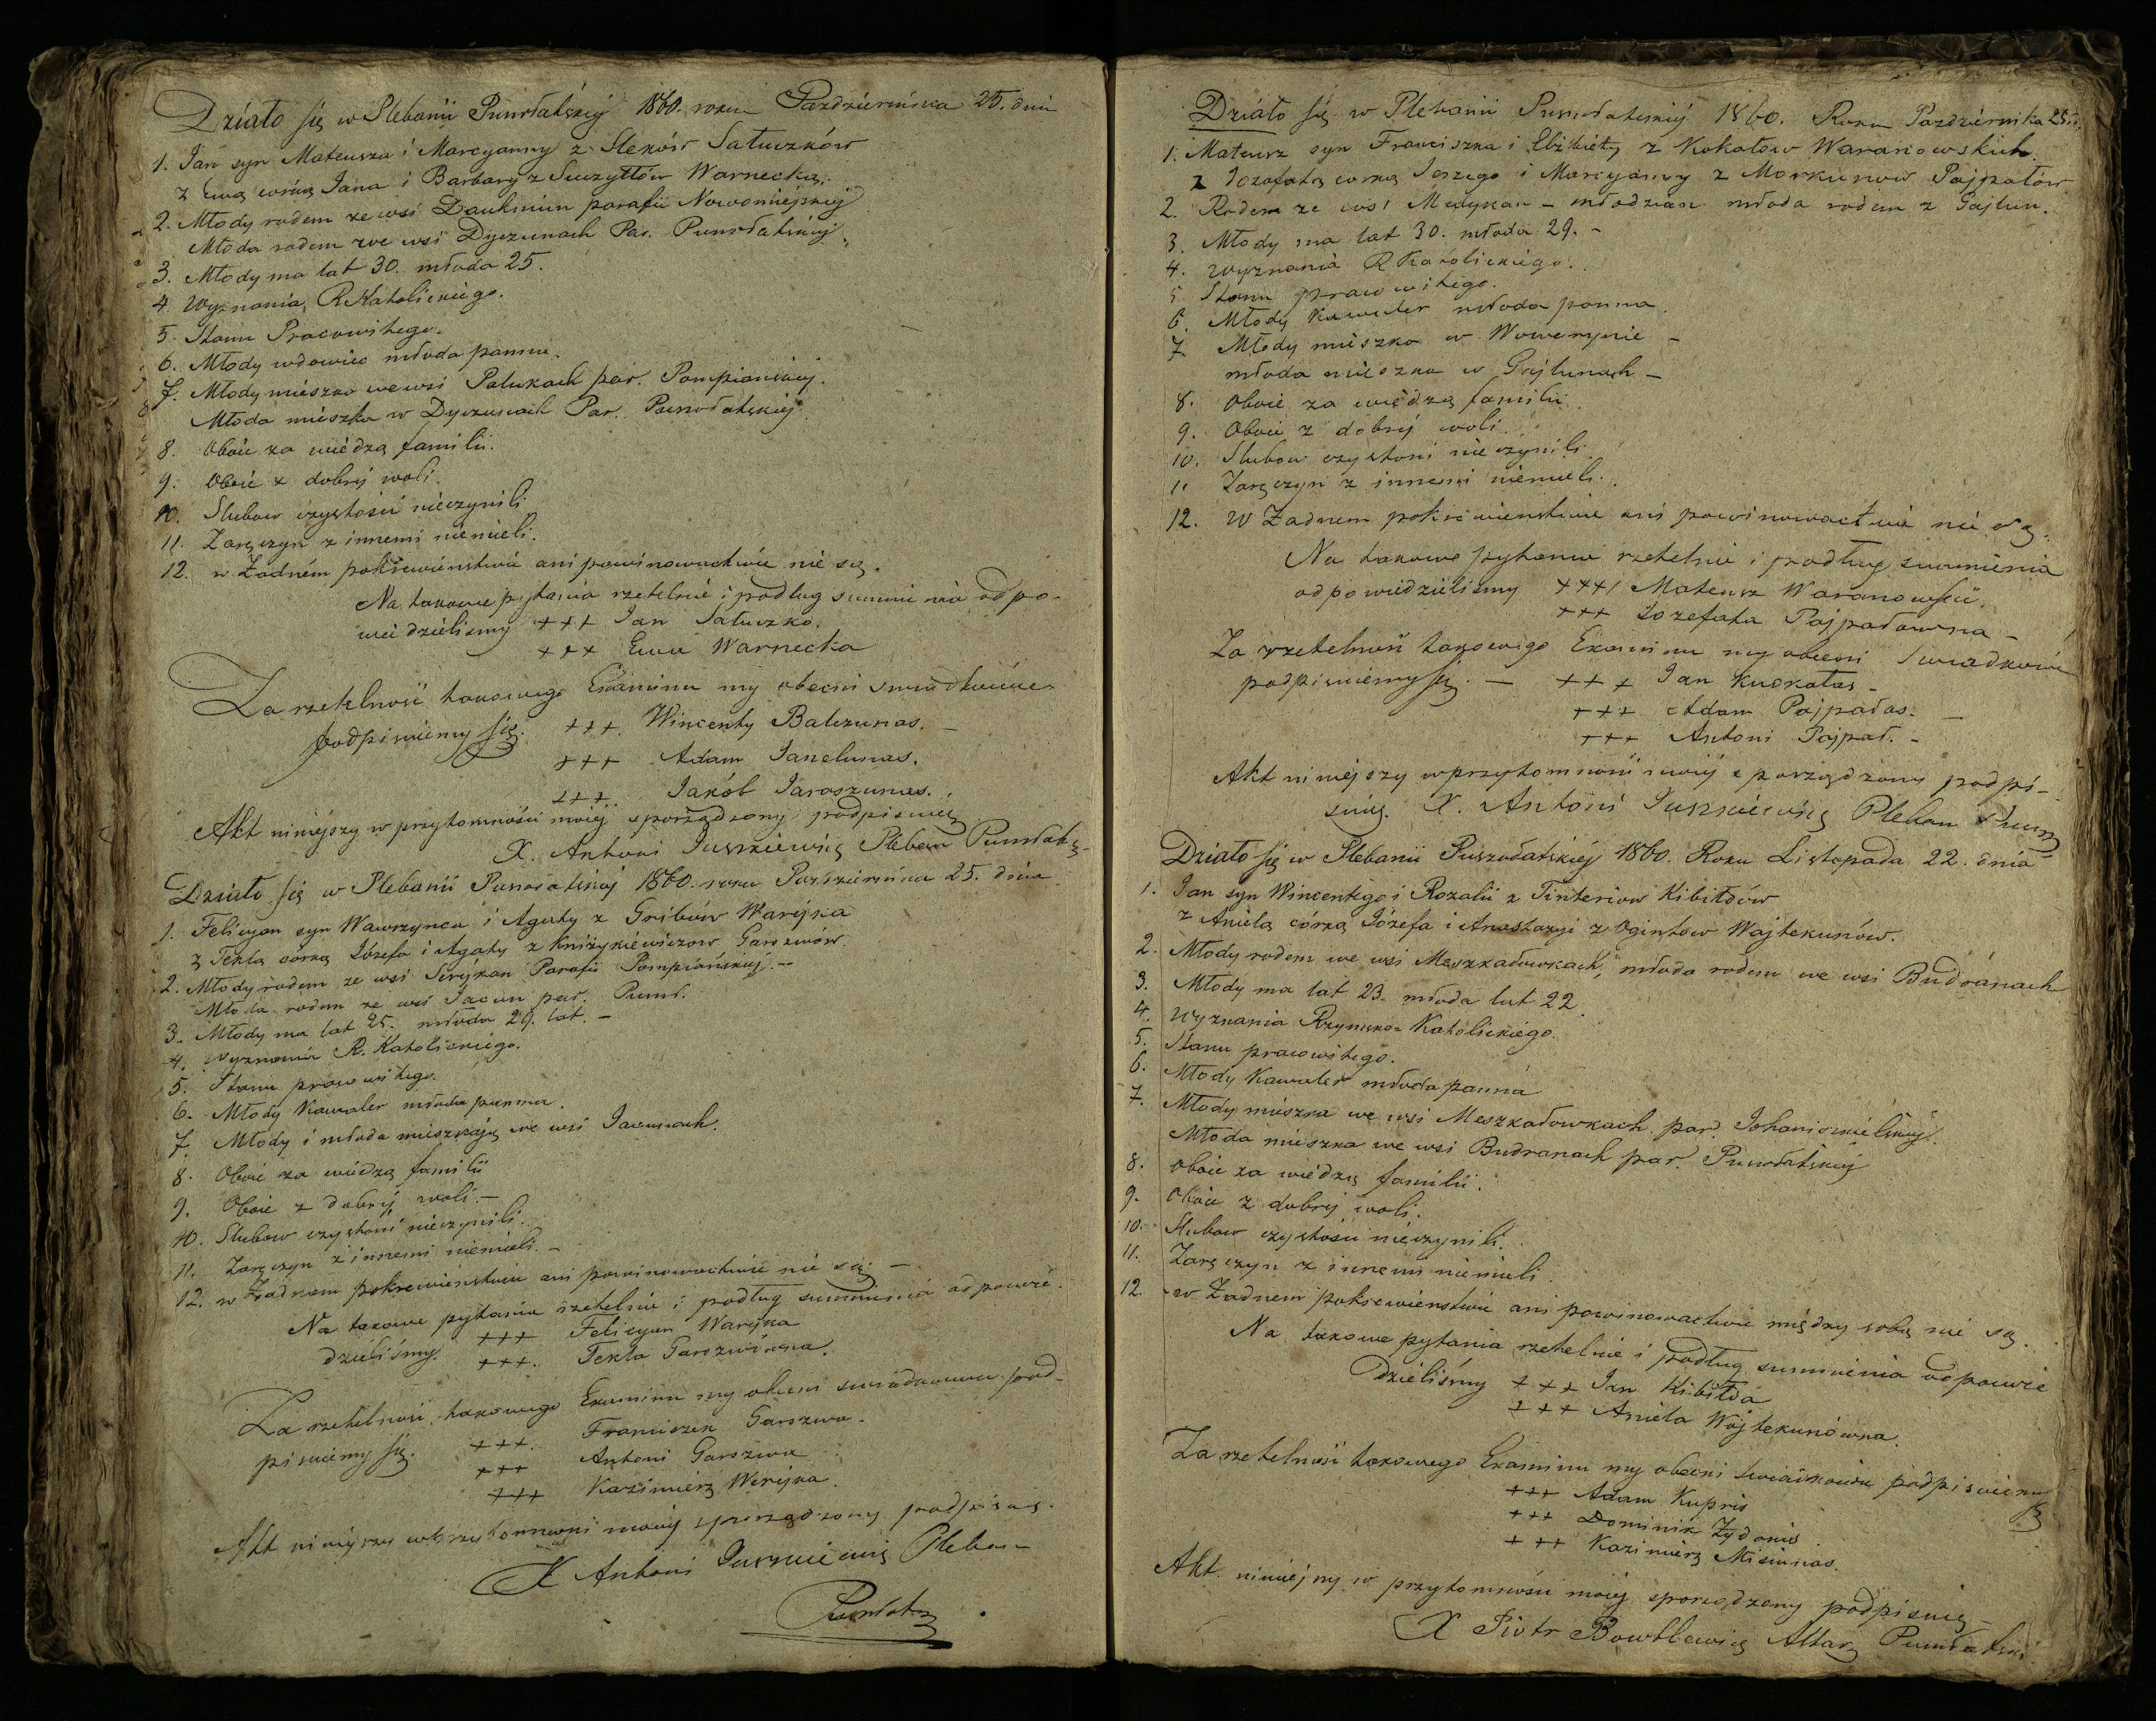 Działo się w Plebanii Puszołatskiej 1860. roku Pazdziernika 25. dnia
1. Jan syn Mateusza i Marcyanny z Slenów Satuszków
z Ewą córką Jana i Barbary z Suszyttów Warnecką.
2. Młody rodem ze wsi parafii Nowomiejskiej
Młoda rodem ze wsi Dyczunach Par. Puszołatskiej
3. Młody ma lat 30. młoda 25.
4. Wyznania R Katolickiego.
5. Stanu Pracowitego.
6. Młody wdowiec młoda panna.
7. Młody mieszka we wsi Patukach par. Pompianskiej.
Młoda mieszka w Dyczunach Par. Puszołatskiej
8. Oboie za wiedzą familii.
9. Oboie z dobrej woli.
10. Slubow czystości nieczynili
11. Zaręczyn z innemi niemieli.
12. w Żadném pokrewieństwie ani powinowactwie nie są.
Na takowe pytania rzetelnie i podług sumnienia odpo-
wiedzielismy +++ Jan Satuszko.
+++ Ewa Warnecka
Za rzetelność takowego Examinu my obecni swiadkowie
podpisuiemy się. +++. Wincenty Balczunas. -
+++ Adam Janelunas.
+++. Jakób Jaroszunas.
Akt niniejszy w przytomności moiej sporządzony podpisuię
X. Antoni Juszkiewicz Pleban
Działo się w Plebanii Puszołatskiej 1860. roku Pazdziernika 25. dnia
1. Felicyan syn Wawrzynca i Agaty z Gribów Warejka
z Teklą córką Józefa i Agaty z Kniżykiewiczow Garszwów.
2. Młody rodem ze wsi Serykan Parafii Pompiańskiej. -
Młoda rodem ze wsi Jacun par. Puszoł.
3. Młody ma lat 25. młoda 29. lat. -
4. Wyznania R. Katolickiego.
5. Stanu pracowitego.
6. Młody Kawaler młoda panna.
7. Młody i młoda mieszkają we wsi Jacunach.
8. Oboie za wiedzą familii
9. Oboie z dobrej woli. -
10. Slubow czystosci nieczynili.
11. Zaręczyn z innemi niemieli. -
12. w Żadnem pokrewieństwie ani powinowactwie nie są. -
Na takowe pytania rzetelnie i podług sumnienia odpowie-
dzieliśmy. +++ Felicyan Warejka
+++. Tekla Garszwówna.
Za rzetelność takowego Examinu my obecni swiadkowie pod-
pisuiemy się. +++. Franciszek Garszwa.
+++ Antoni Garszwa
+++ Kazimierz Werejka.
Akt niniejszy w przytomności moiej sporządzony podpisuię.
X Antoni Juszkiewicz Pleban
Działo się w Plebanii Puszołatskiej 1860. Roku Pazdziernika 25.
1. Mateusz syn Franciszka i Elżbiety z Kukałow Waranowskich
z Jozafatą corką Jerzego i Marcyanny z Markunow Pajpałów
2. Rodem ze wsi Medykan - młodzian młoda rodem z Gajlun.
3. Młody ma lat 30. młoda 29. -
4. Wyznania R Katolickiego.
5 Stanu pracowitego.
6. Młody Kawaler młoda panna.
7. Młody mieszka w Wowerynie -
młoda mieszka w Gajlunach -
8. Oboie za wiedzą familii.
9. Oboie z dobrej woli.
10. Slubow czystości nie czynili.
11 Zaręczyn z innemi niemieli.
12. W Żadnem pokrewienstwie ani powinowactwie nie są.
Na takowe pytania rzetelnie i podług sumnienia
odpowiedzielismy +++ Mateusz Waranowski.
+++ Jozefata Pajpałowna -
Za rzetelność takowego Examinu my obecni swiadkowie
podpisuiemy się. - +++ Jan Kuokałas -
+++ Adam Pajpałas. -
+++ Antoni Pajpał. -
Akt niniejszy w przytomności moiej sporządzony podpi-
suię. X. Antoni Juszkiewicz Pleban
Działo się w Plebanii Puszołatskiéj 1860. Roku Listopada 22. dnia
1. Jan syn Wincentego i Rozalii z Tinteriow Kibiłdów
z Anielą córką Józefa i Anastazyi z Ogintow Wajtekunów.
2. Młody rodem we wsi Meszkałowkach, młoda rodem we wsi Budranach
3. Młody ma lat 23. młoda lat 22.
4. Wyznania Rzymsko-Katolickiego.
5. Stanu pracowitego.
6. Młody Kawaler młoda panna
7. Młody mieszka we wsi Meszkałowkach par. Johaniszkielskiej.
Młoda mieszka we wsi Budranach par. Puszołatskiej
8. Oboie za wiedzą familii.
9. Oboie z dobrej woli.
10. Slubow czystości nieczynili.
11. Zaręczyn z innemi niemieli.
12. w Żadnem pokrewieństwie ani powinowactwie między sobą nie są.
Na takowe pytania rzetelnie i podług sumnienia odpowie
dzieliśmy +++ Jan Kibiłda
+++ Aniela Wajtekunówna.
Za rzetelność takowego Examinu my obecni swiadkowie podpisuiemy
się
+++ Adam Kupris
+++ Dominik Żydonis
+++ Kazimierz Misiunas.
Akt niniejszy w przytomności moiej sporządzony podpisuię -
X Piotr Bowblewicz Altarz Puszołatski.